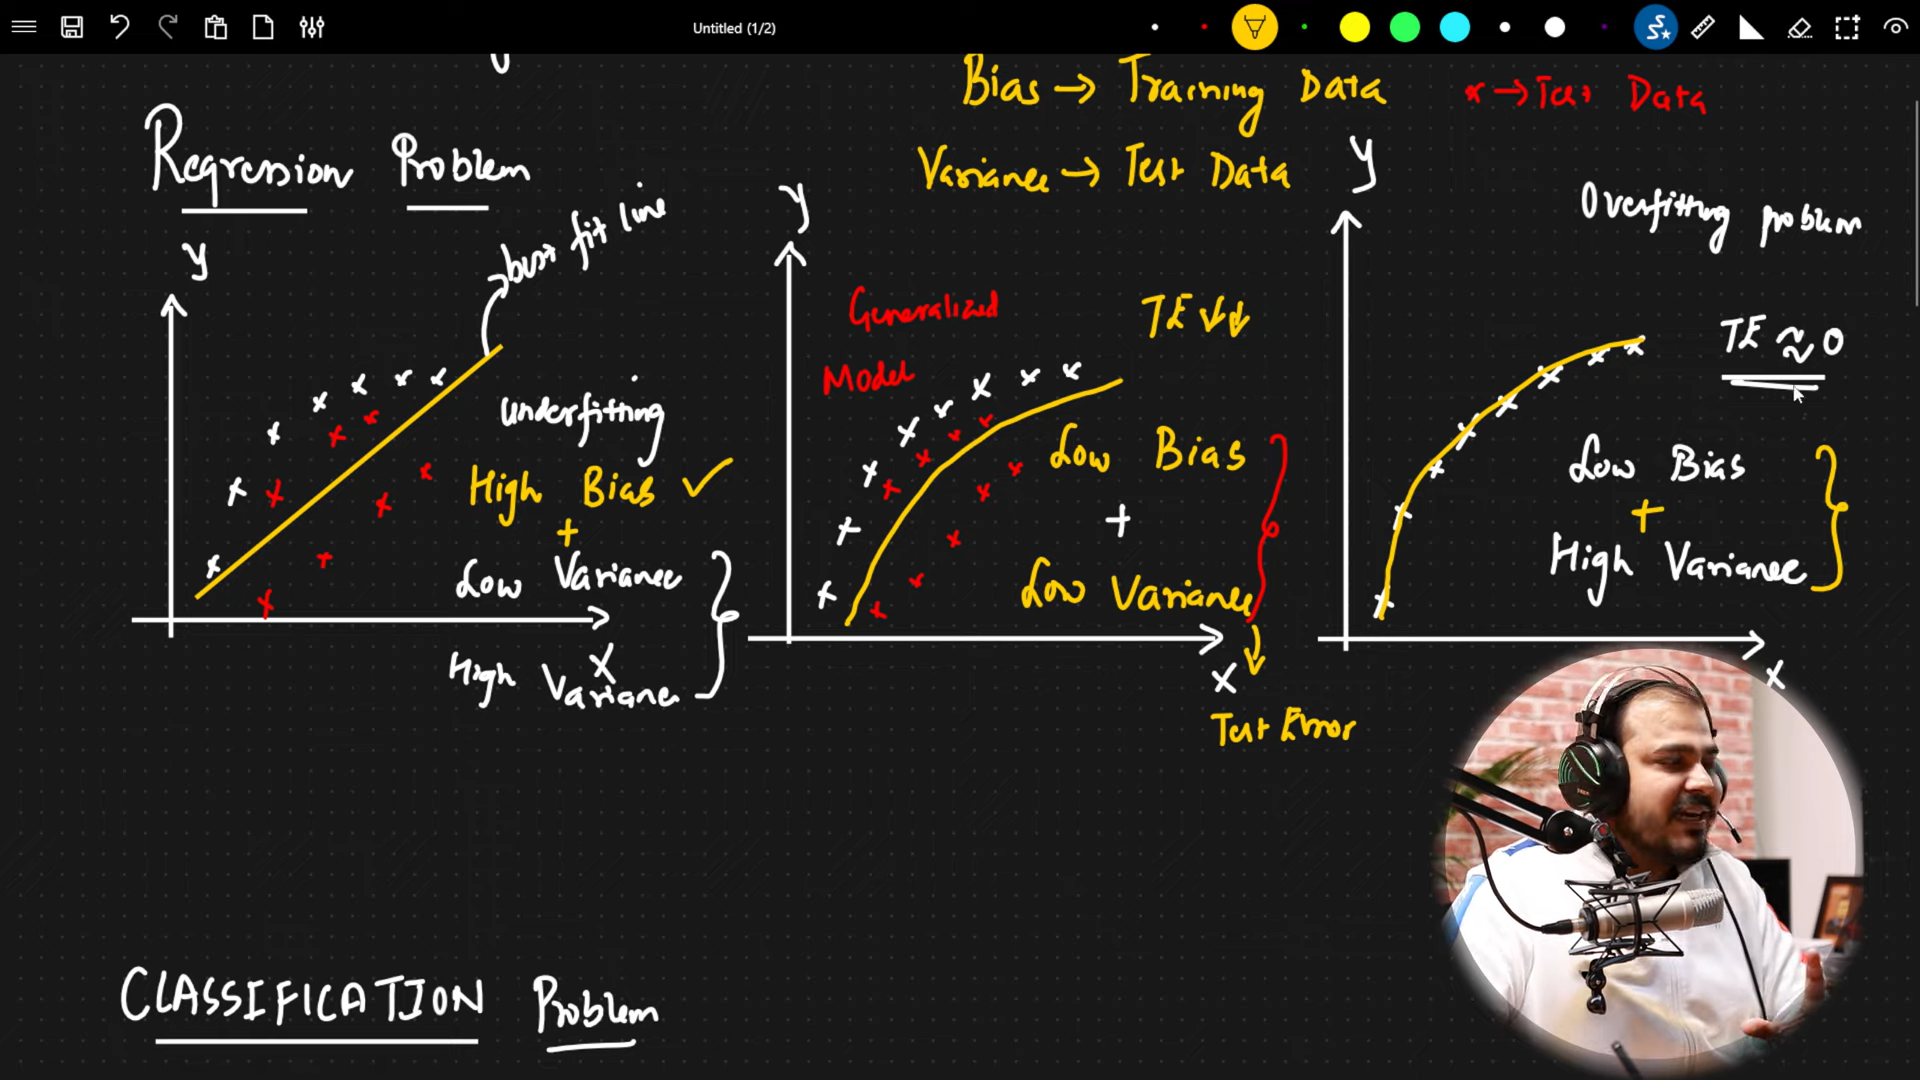 Untitled (1/2)
Bias → Training Data
x → Test Data
Variance → Test Data
Regression Problem
y
best fit line
underfitting
High Bias ✓
+
Low Variance
High Variance
X
y
Generalized
Model
TE ↓↓
Low Bias
+
Low Variance
X
Test Error
y
Overfitting problem
TE ≈ 0
Low Bias
+
High Variance
X
CLASSIFICATION Problem